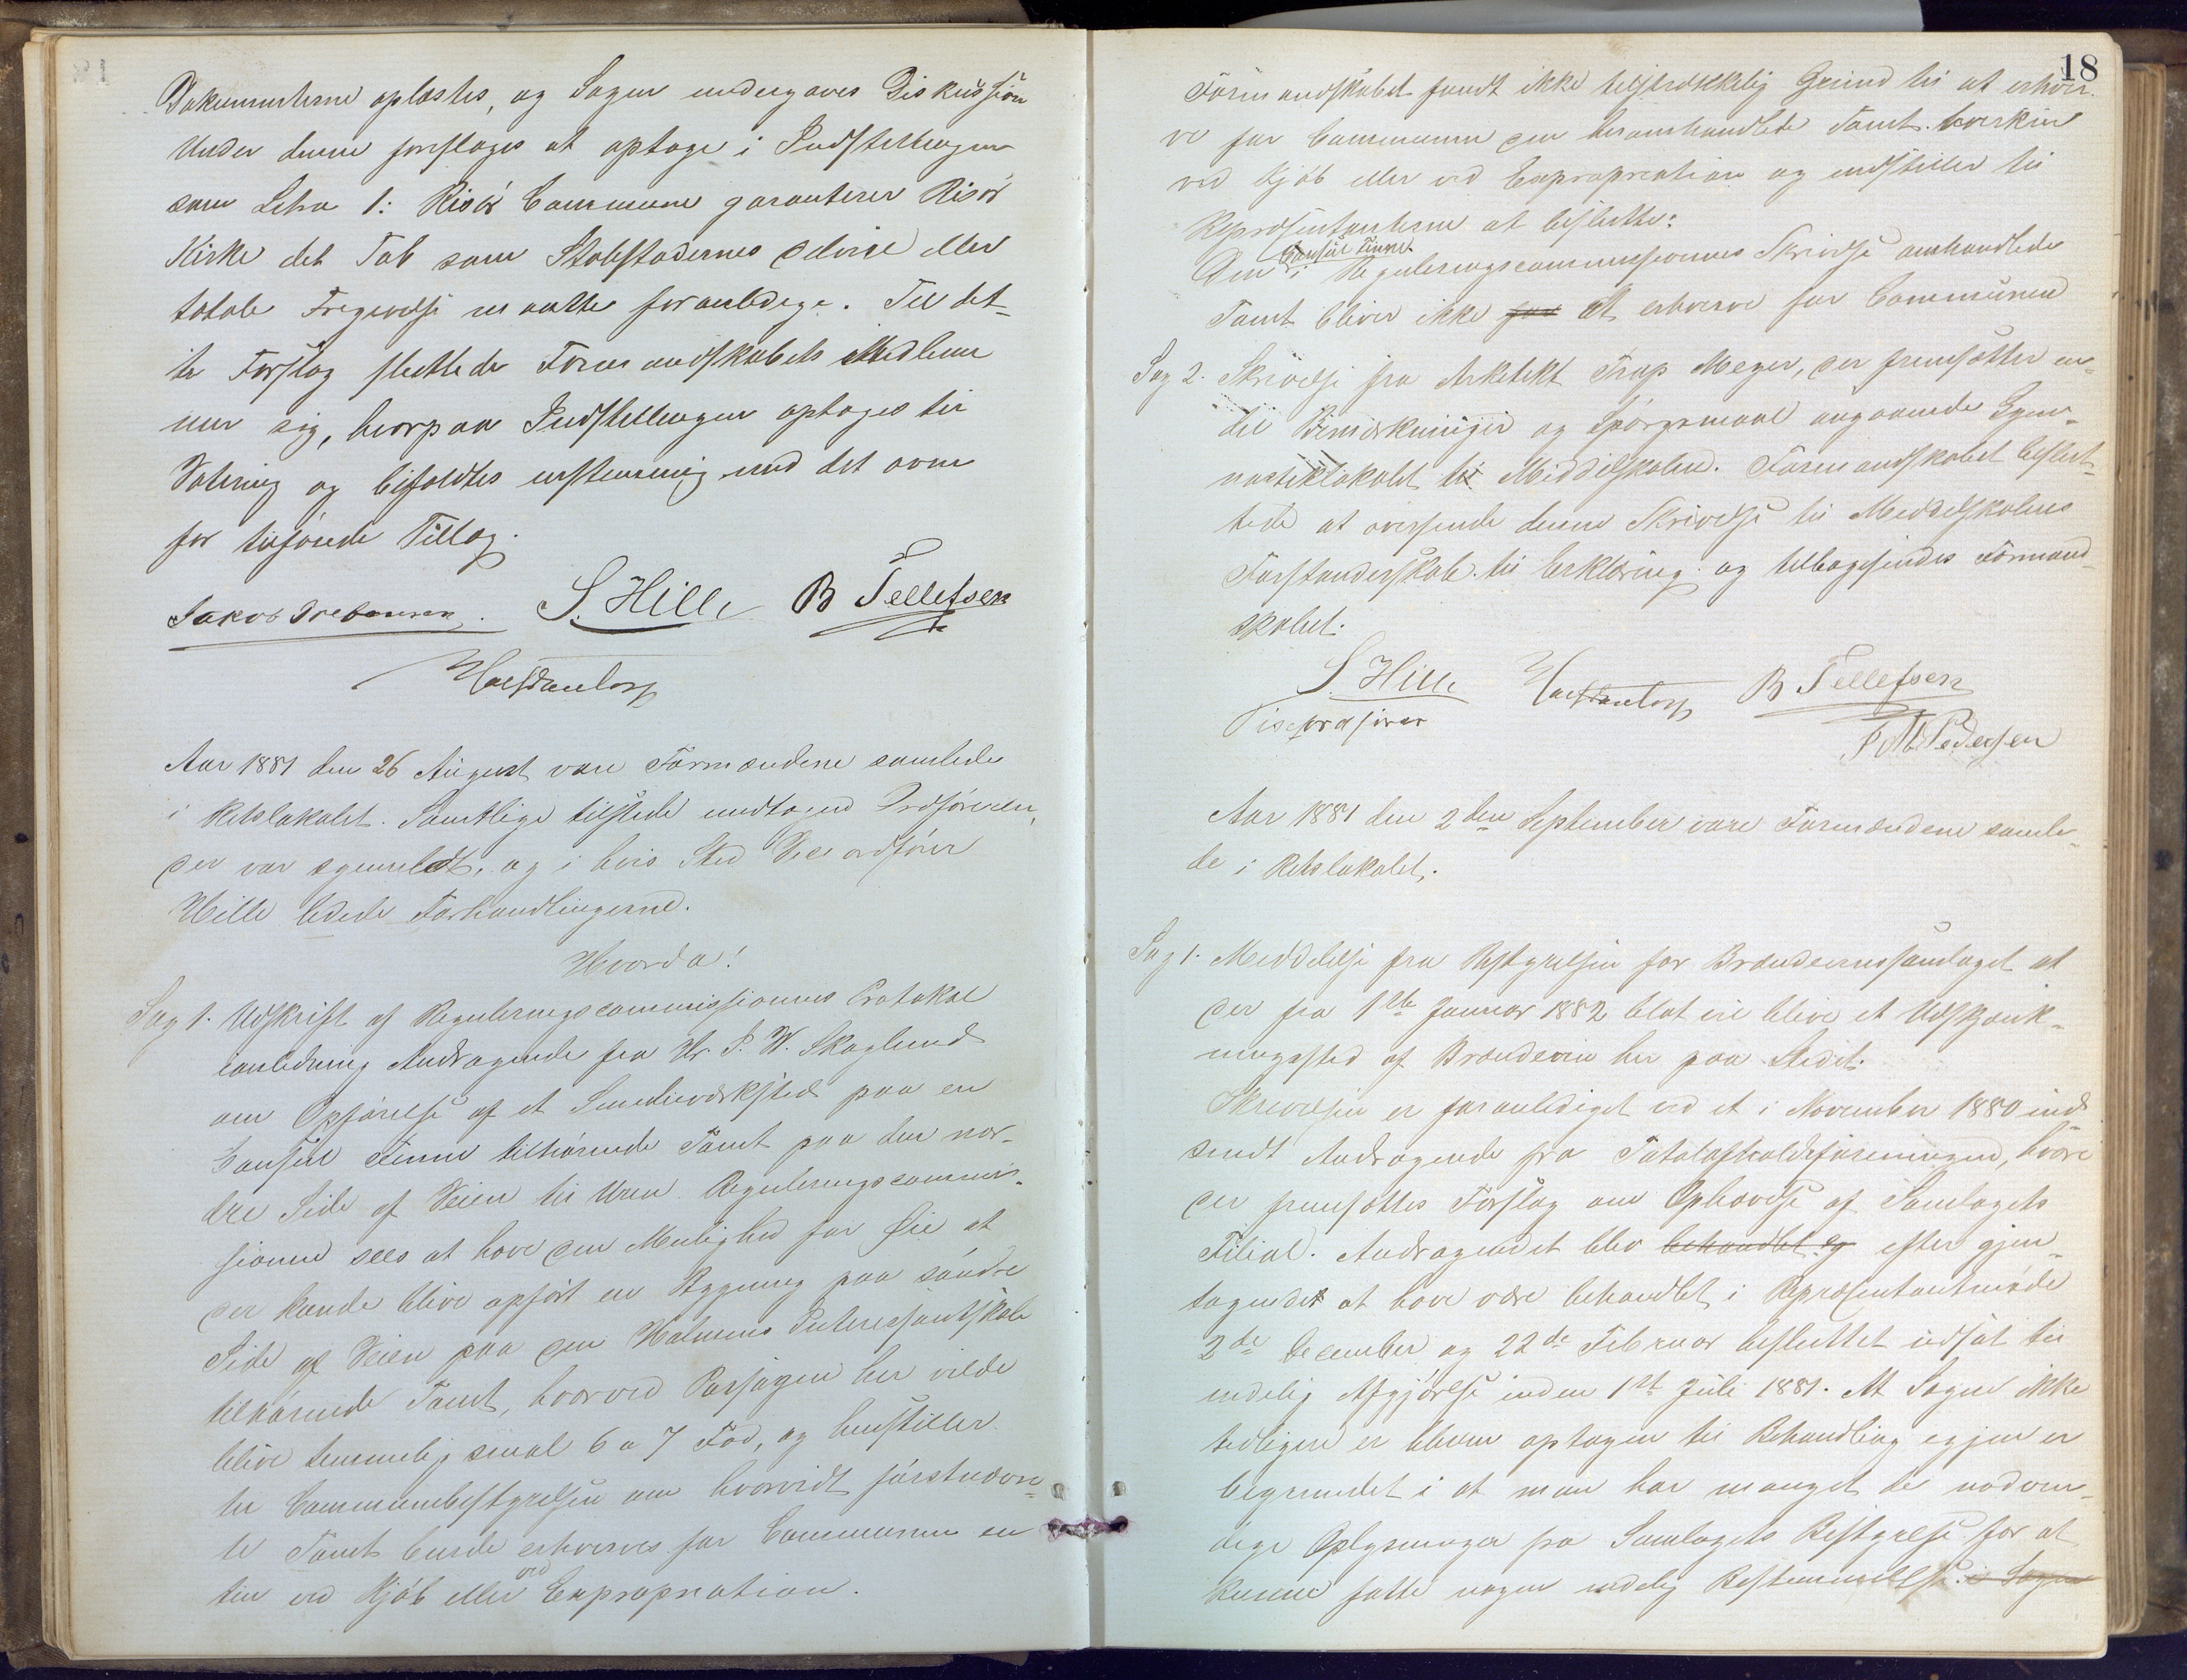 Dokumenterne oplæstes, og Sagen undergaves Diskussion
Under denne foresloges at optage i Indstillingen
som Litra 1: Risør Commune garanterer Risør
Kirke det Tab som Stolestadernes delvise eller
totale Frigivelse maatte foranledige. Til det-
te Forslag sluttede Formandskabets Medlem-
mer sig, hvorpaa Indstillingen optoges til
Votering og bifaldtes enstemmig med det oven
for tilføiede Tillæg.
Jakob Prebensen. S. Hille B Tellefsen
Aar 1881 den 26 August vare Formændene samlede
i Retslokalet. Samtlige tilstede undtagen Ordføreren,
der var sygemeldt, og i hvis Sted Viceordfører
Hille ledede Forhandlingerne.
Hvorda!
Sag 1. Udskrift af Reguleringscommissionens Protokol
anledning Andragende fra Hr. P. W. Skoglund
om Opførelse af et Smedieværksted paa en
Consul Finne tilhørende Tomt paa den nor-
dre Side af Veien til Uren. Reguleringscommis-
sionen sees at have den Mulighed for Øie at
der kunde blive opført en Bygning paa søndre
Side af Veien paa den Holmens Interessentskab
tilhørende Tomt, hvorved Passagen her vilde
blive temmelig smal 6 a 7 Fod, og henstiller
til Communebestyrelsen om hvorvidt førstnævn-
te Tomt burde erhverves for Communen en
ten ved Kjøb eller ved Expropriation.
18
Formandskabet fandt ikke tilstrækkelig Grund til at erhver-
ve for Communen den heromhandlede Tomt hverken
ved Kjøb eller ved Expropriation og indstiller til
Repræsentanterne at beslutte:
Consul Finnes
Den i Reguleringscommissionens Skrivelse omhandlede
Tomt bliver ikke for at erhverve for Communen
Sag 2. Skrivelse fra Arkitekt Trap Meyer, der fremsætter en
del Bemærkninger og Spørgsmaal angaaende Gym-
nastiklokalet til Middelskolen. Formandskabet beslut-
tede at oversende denne Skrivelse til Middelskolens
Forstanderskab til Erklæring og tilbagesendes Formand-
skabet.
S. Hille B Tellefsen
Viseordfører
P M Pedersen
Aar 1881 den 2den September vare Formændene samle-
de i Retslokalet.
Sag 1. Meddelelse fra Bestyrelsen for Brændevinssamlaget at
der fra 1ste Januar 1882 blot vil blive et Udskjænk-
ningssted af Brændevin her paa Stedet.
Skrivelsen er foranlediget ved et i November 1880 ind
sendt Andragende fra Totalafholdsforeningen, hvori
der fremsattes Forslag om Ophævelse af Samlagets
Filial. Andragendet blev behandlet og efter gjen-
tagendet at have være behandlet i Repræsentantmøde
2de December og 22de Februar besluttet udsat til
endelig Afgjørelse inden 1ste Juli 1881. At Sagen ikke
tidligere er bleven optagen til Behandling igjen er
begrundet i at man har manget de nødven-
dige Oplysninger fra Samlagets Bestyrelse for at
kunne fatte nogen endelig Bestemmelse i Sagen